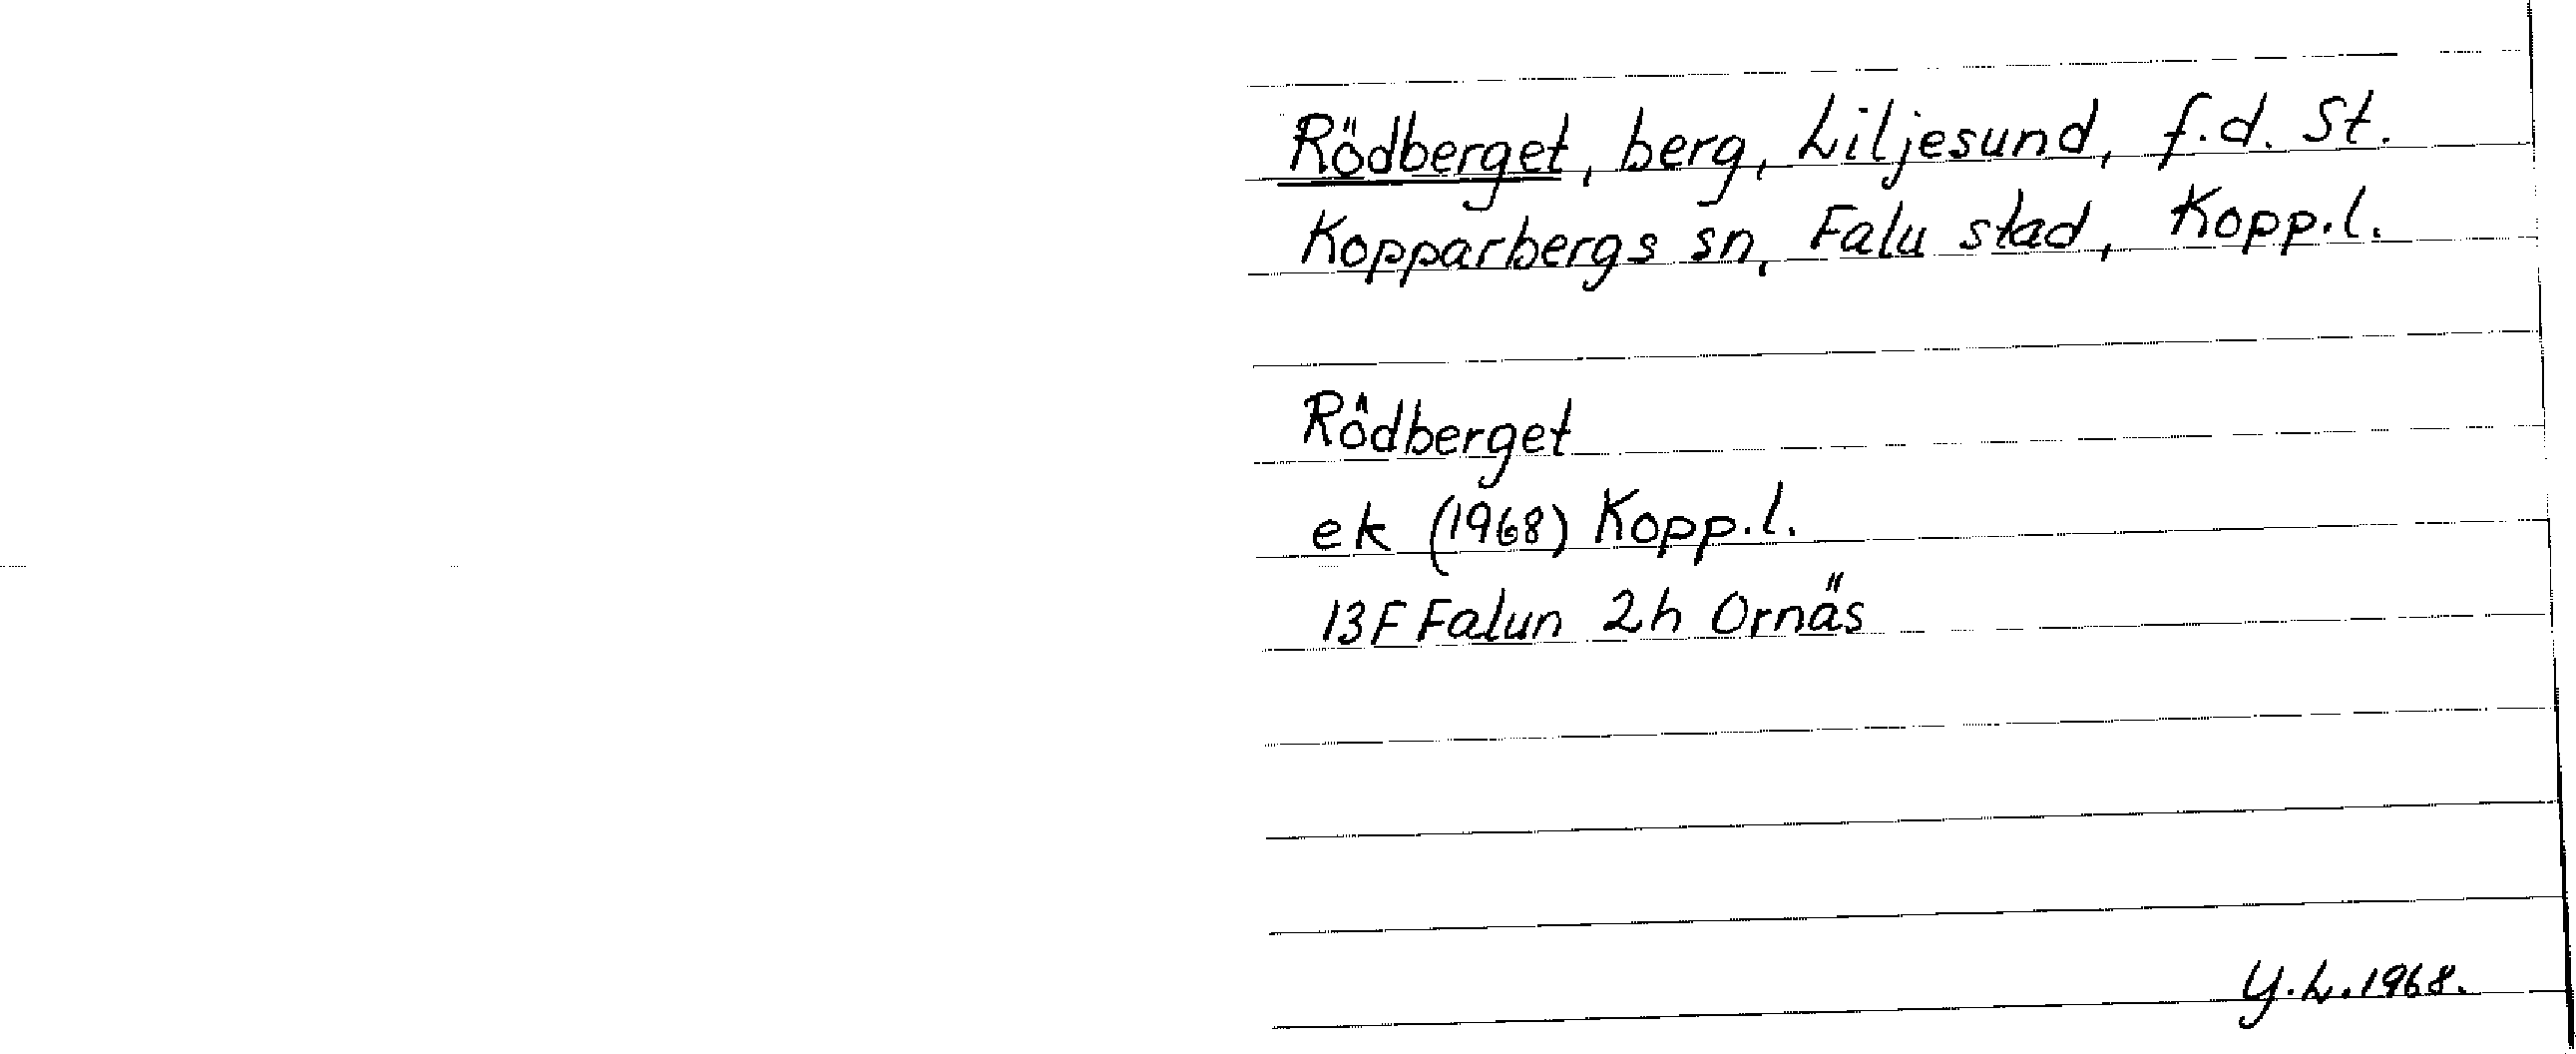 Rödberget, berg, Liljesund, f.d. St.
Kopparbergs sn, Falu stad, Kopp.l.
Rödberget
ek (1968) Kopp.l.
13F Falun 2h Ornäs
Y.L.1968.